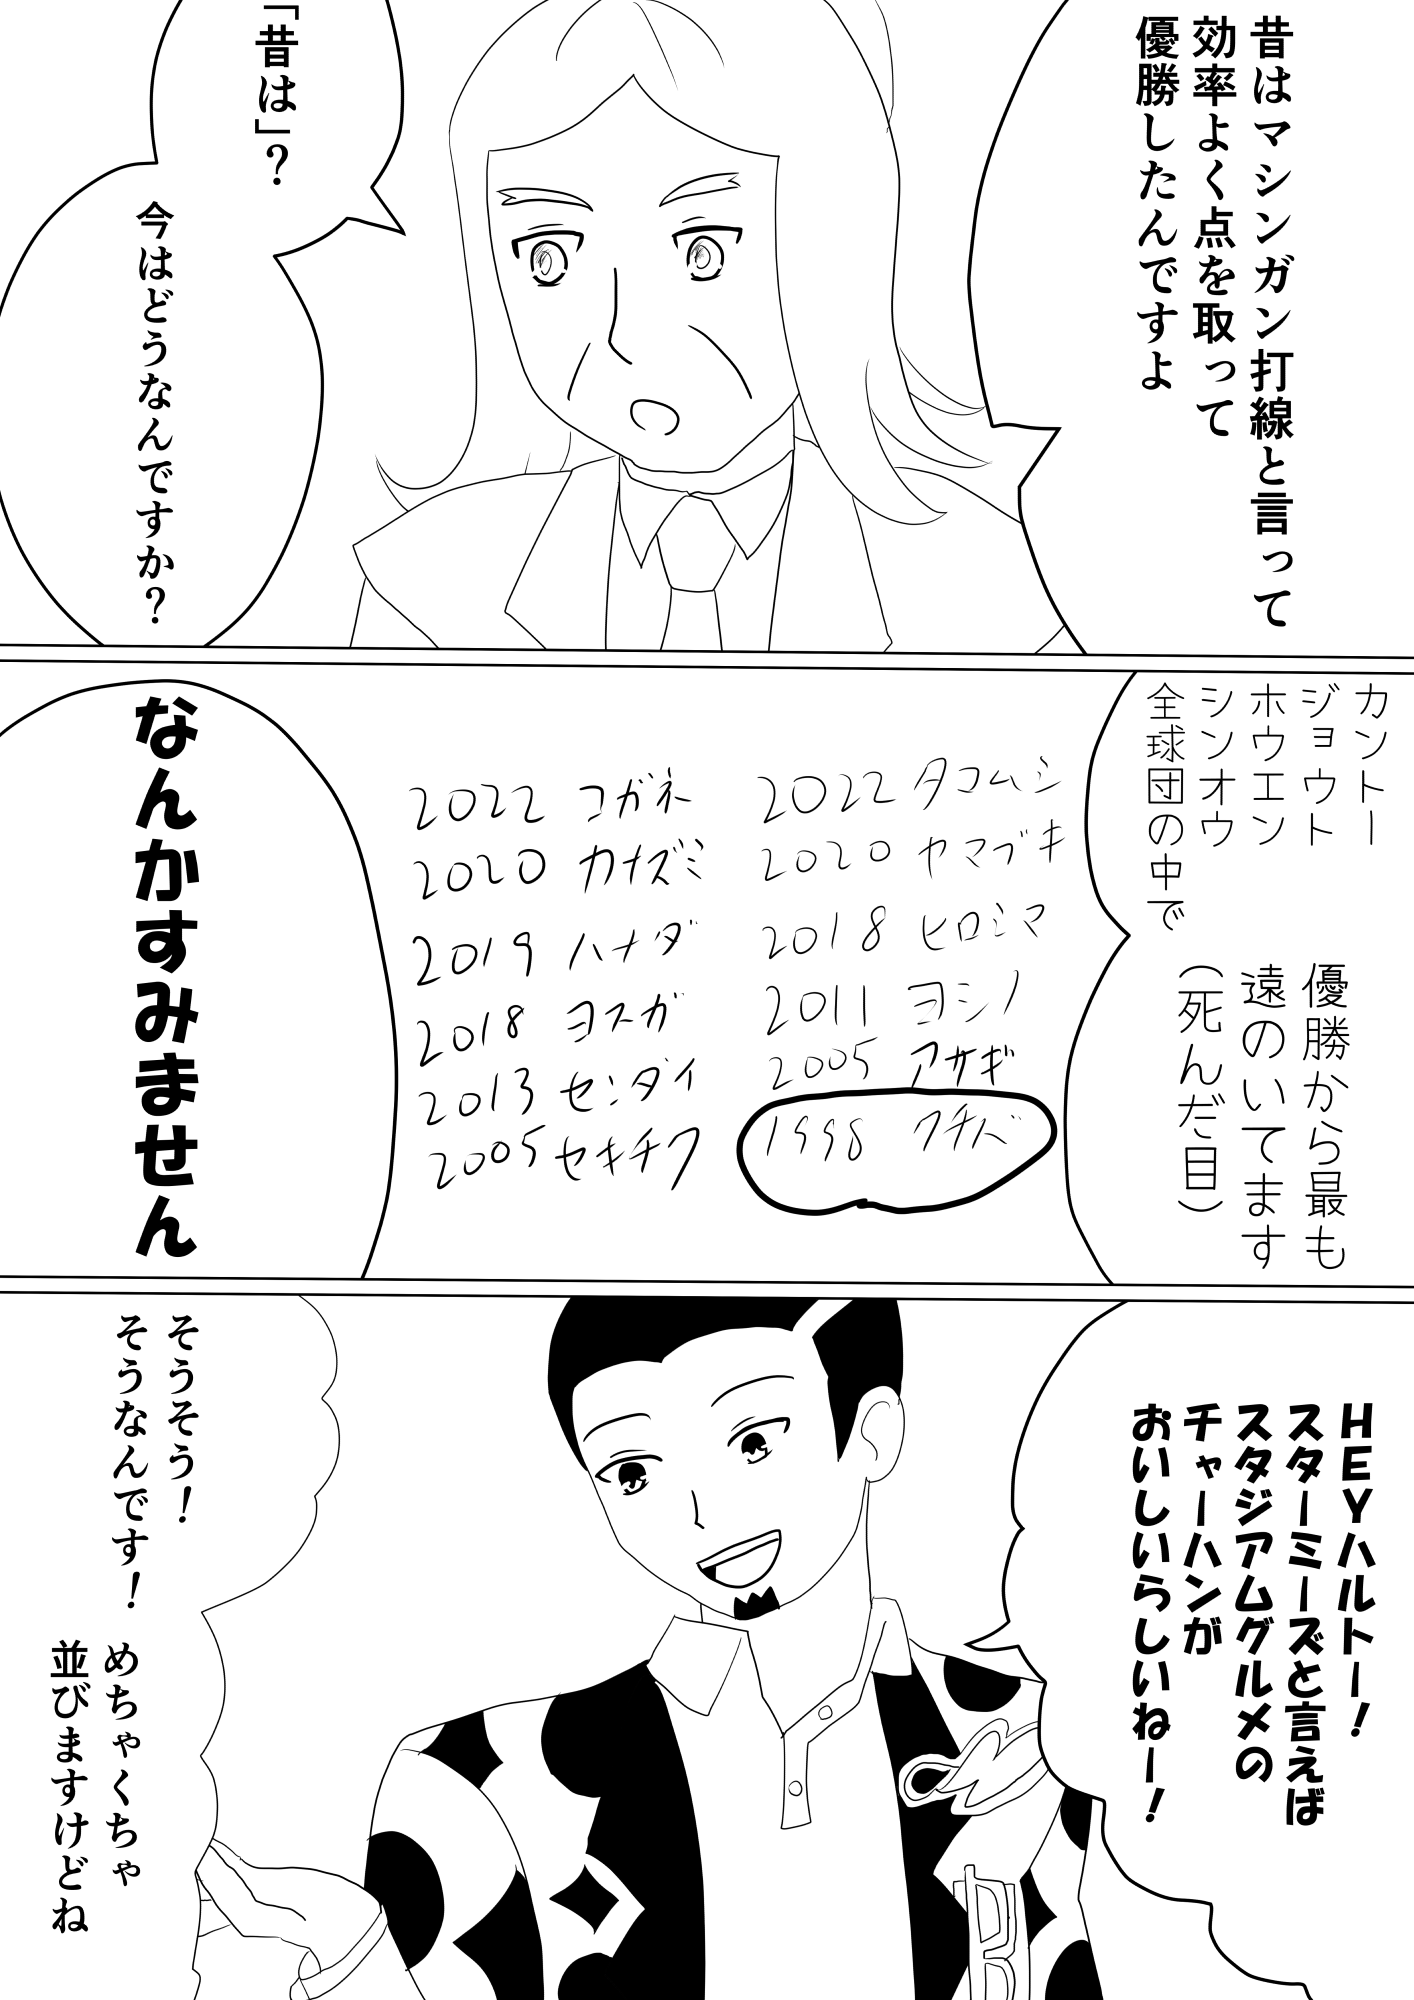 昔はマシンガン打線と言って
効率よく点を取って
優勝したんですよ
「昔は」?
今はどうなんですか?
カントー
ジョウト
ホウエン
シンオウ
全球団の中で
優勝から最も
遠のいてます
(死んだ目)
2022 タコムシ
2020 ヤマブキ
2018 ヒロシマ
2011 ヨシノ
2005 アサギ
1998 クチバ
2022 コガネ
2020 カナズミ
2019 ハナダ
2018 ヨスガ
2013 センダイ
2005 セキチク
なんかすみません
HEYハルトー!
スターミーズと言えば
スタジアムグルメの
チャーハンが
おいしいらしいねー!
そうそう!
そうなんです!
めちゃくちゃ
並びますけどね
B